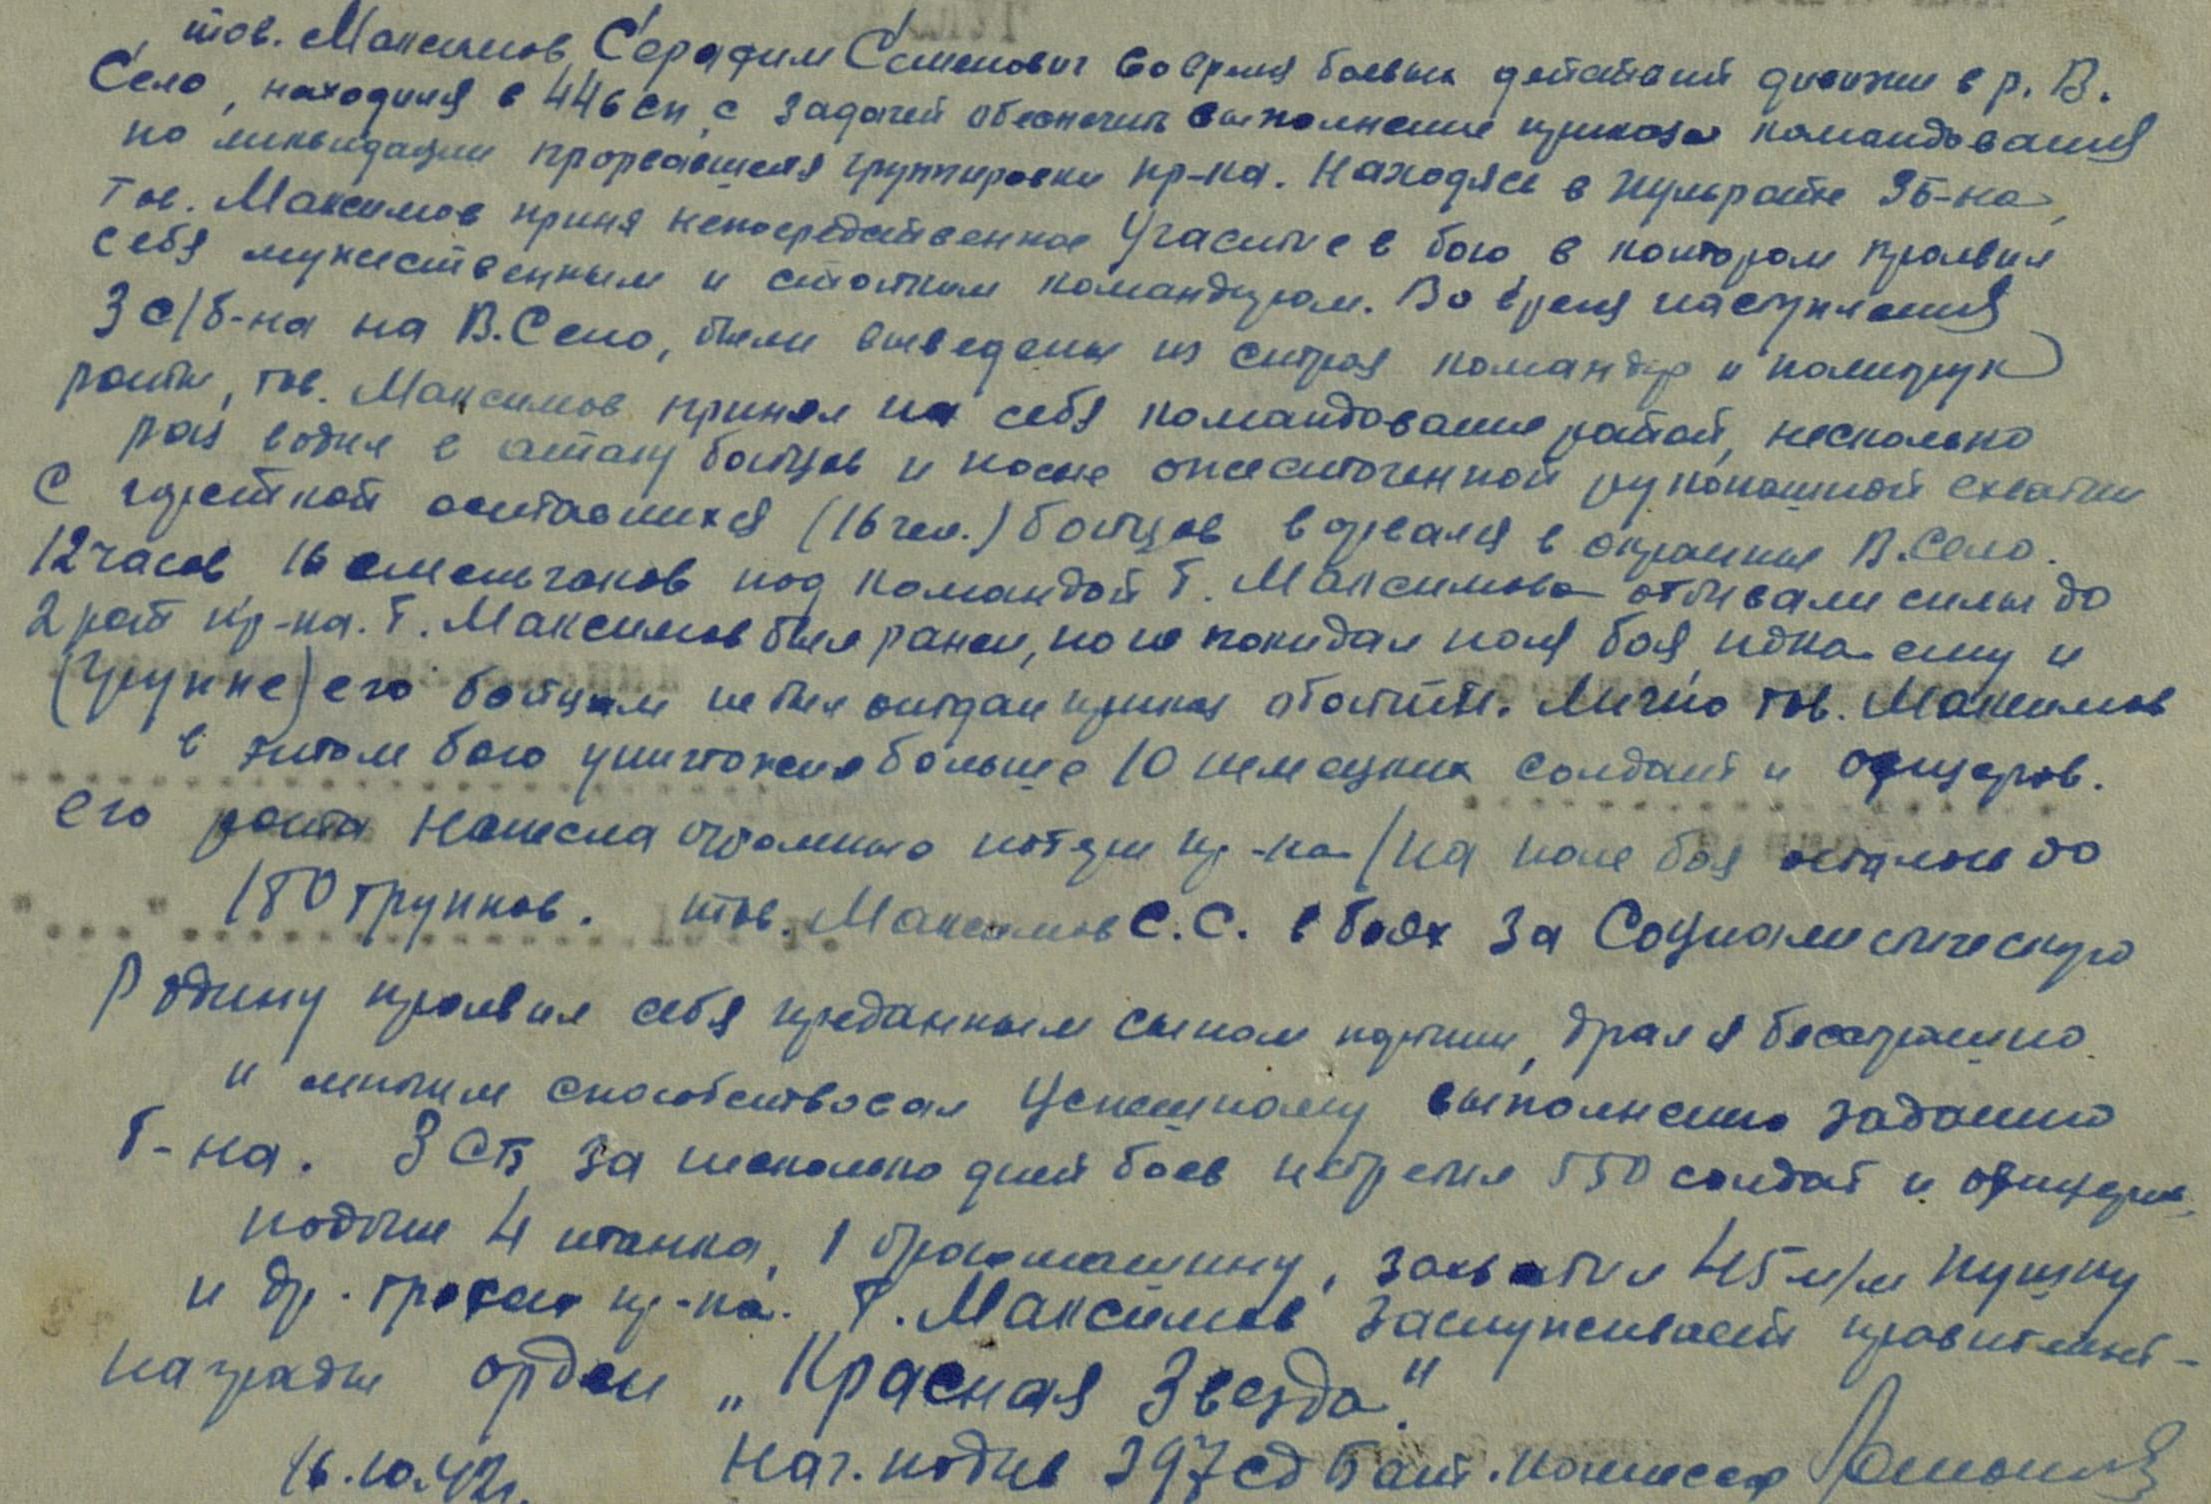 тов. Максимов Серафим Семенович во время боевых действий дивизии в р. В.
Село, находился в 446 сп с задачей обеспечить выполнение приказа командования
по ликвидации прорвавшейся группировки пр-ка. Находясь в пульроте 3б-на,
тов. Максимов приня непосредственное участие в бою в котором проявил
себя мужественным и стойким командиром. Во время наступления
3 с/б-на на В.Село, были выведены из строя командир и политрук
роты, тов. Максимов принял на себя командование ротой, несколько
раз водил в атаку бойцов и после ожесточенной рукопашной схватки
с горсткой оставшихся (16 чел.) бойцов ворвался в окраины В.Село.
12 часов 16 смельчаков под командой т. Максимова отбивали силы до
2 рот пр-ка. т. Максимов был ранен, но не покидал поля боя, пока ему и
(группе) его бойцам не был отдан приказ отойти. Лично тов. Максимов
в этом бою уничтожил больше 10 немецких солдат и офицеров.
Его рота нанесла огромные потери пр-ка /на поле боя осталось до
180 трупков. тов. Максимов С.С. в боях за Социалистическую
Родину проявил себя преданным сыном партии, дрался бесстрашно
и многим способствовал успешному выполнению заданию
б-на. 3 СБ за несколько дней боев истребил 550 солдат и офицеров,
подбил 4 танка, 1 бронемашину, захватил 45 м/м пушку
и др. трофеи пр-ка. Т. Максимов заслуживает правительст-
награды орден „Красная Звезда."
16.10.42г. Нач. подив 397 сд Бат. комиссар